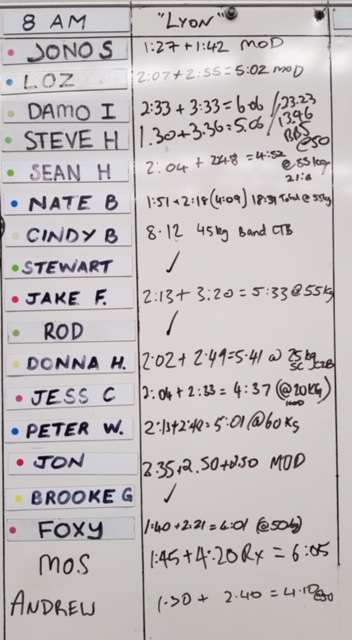 8 AM "LYON"
JONO S 1:27 + 1:42 MOD
LOZ 2:07 + 2:55 = 5:02 MOD
DAMO I 2:33 + 3:33 = 6:06 / 23.23
STEVE H 1.30 + 3:36 = 5.06 / @50
SEAN H 2:04 + 2:48 = 4:52 @55kg
NATE B 1:51 + 2:18 (4:09) 18:31 Total @55kg
CINDY B 8.12 45kg Band CTB
STEWART ✓
JAKE F. 2:13 + 3:20 = 5:33 @55kg
ROD ✓
DONNA H. 2:02 + 2:49 = 5:41 @ 25kg
JESS C 2:04 + 2:33 = 4:37 (@20KG) MOD
PETER W. 2:13 + 2:48 = 5:01 @60Kg
JON 2.50 + MOD
BROOKE G ✓
FOXY 1:40 + 2:21 = 4:01 (@50kg)
MOS 1:45 + 4:20 Rx = 6:05
ANDREW 1.30 + 2.40 = 4.10